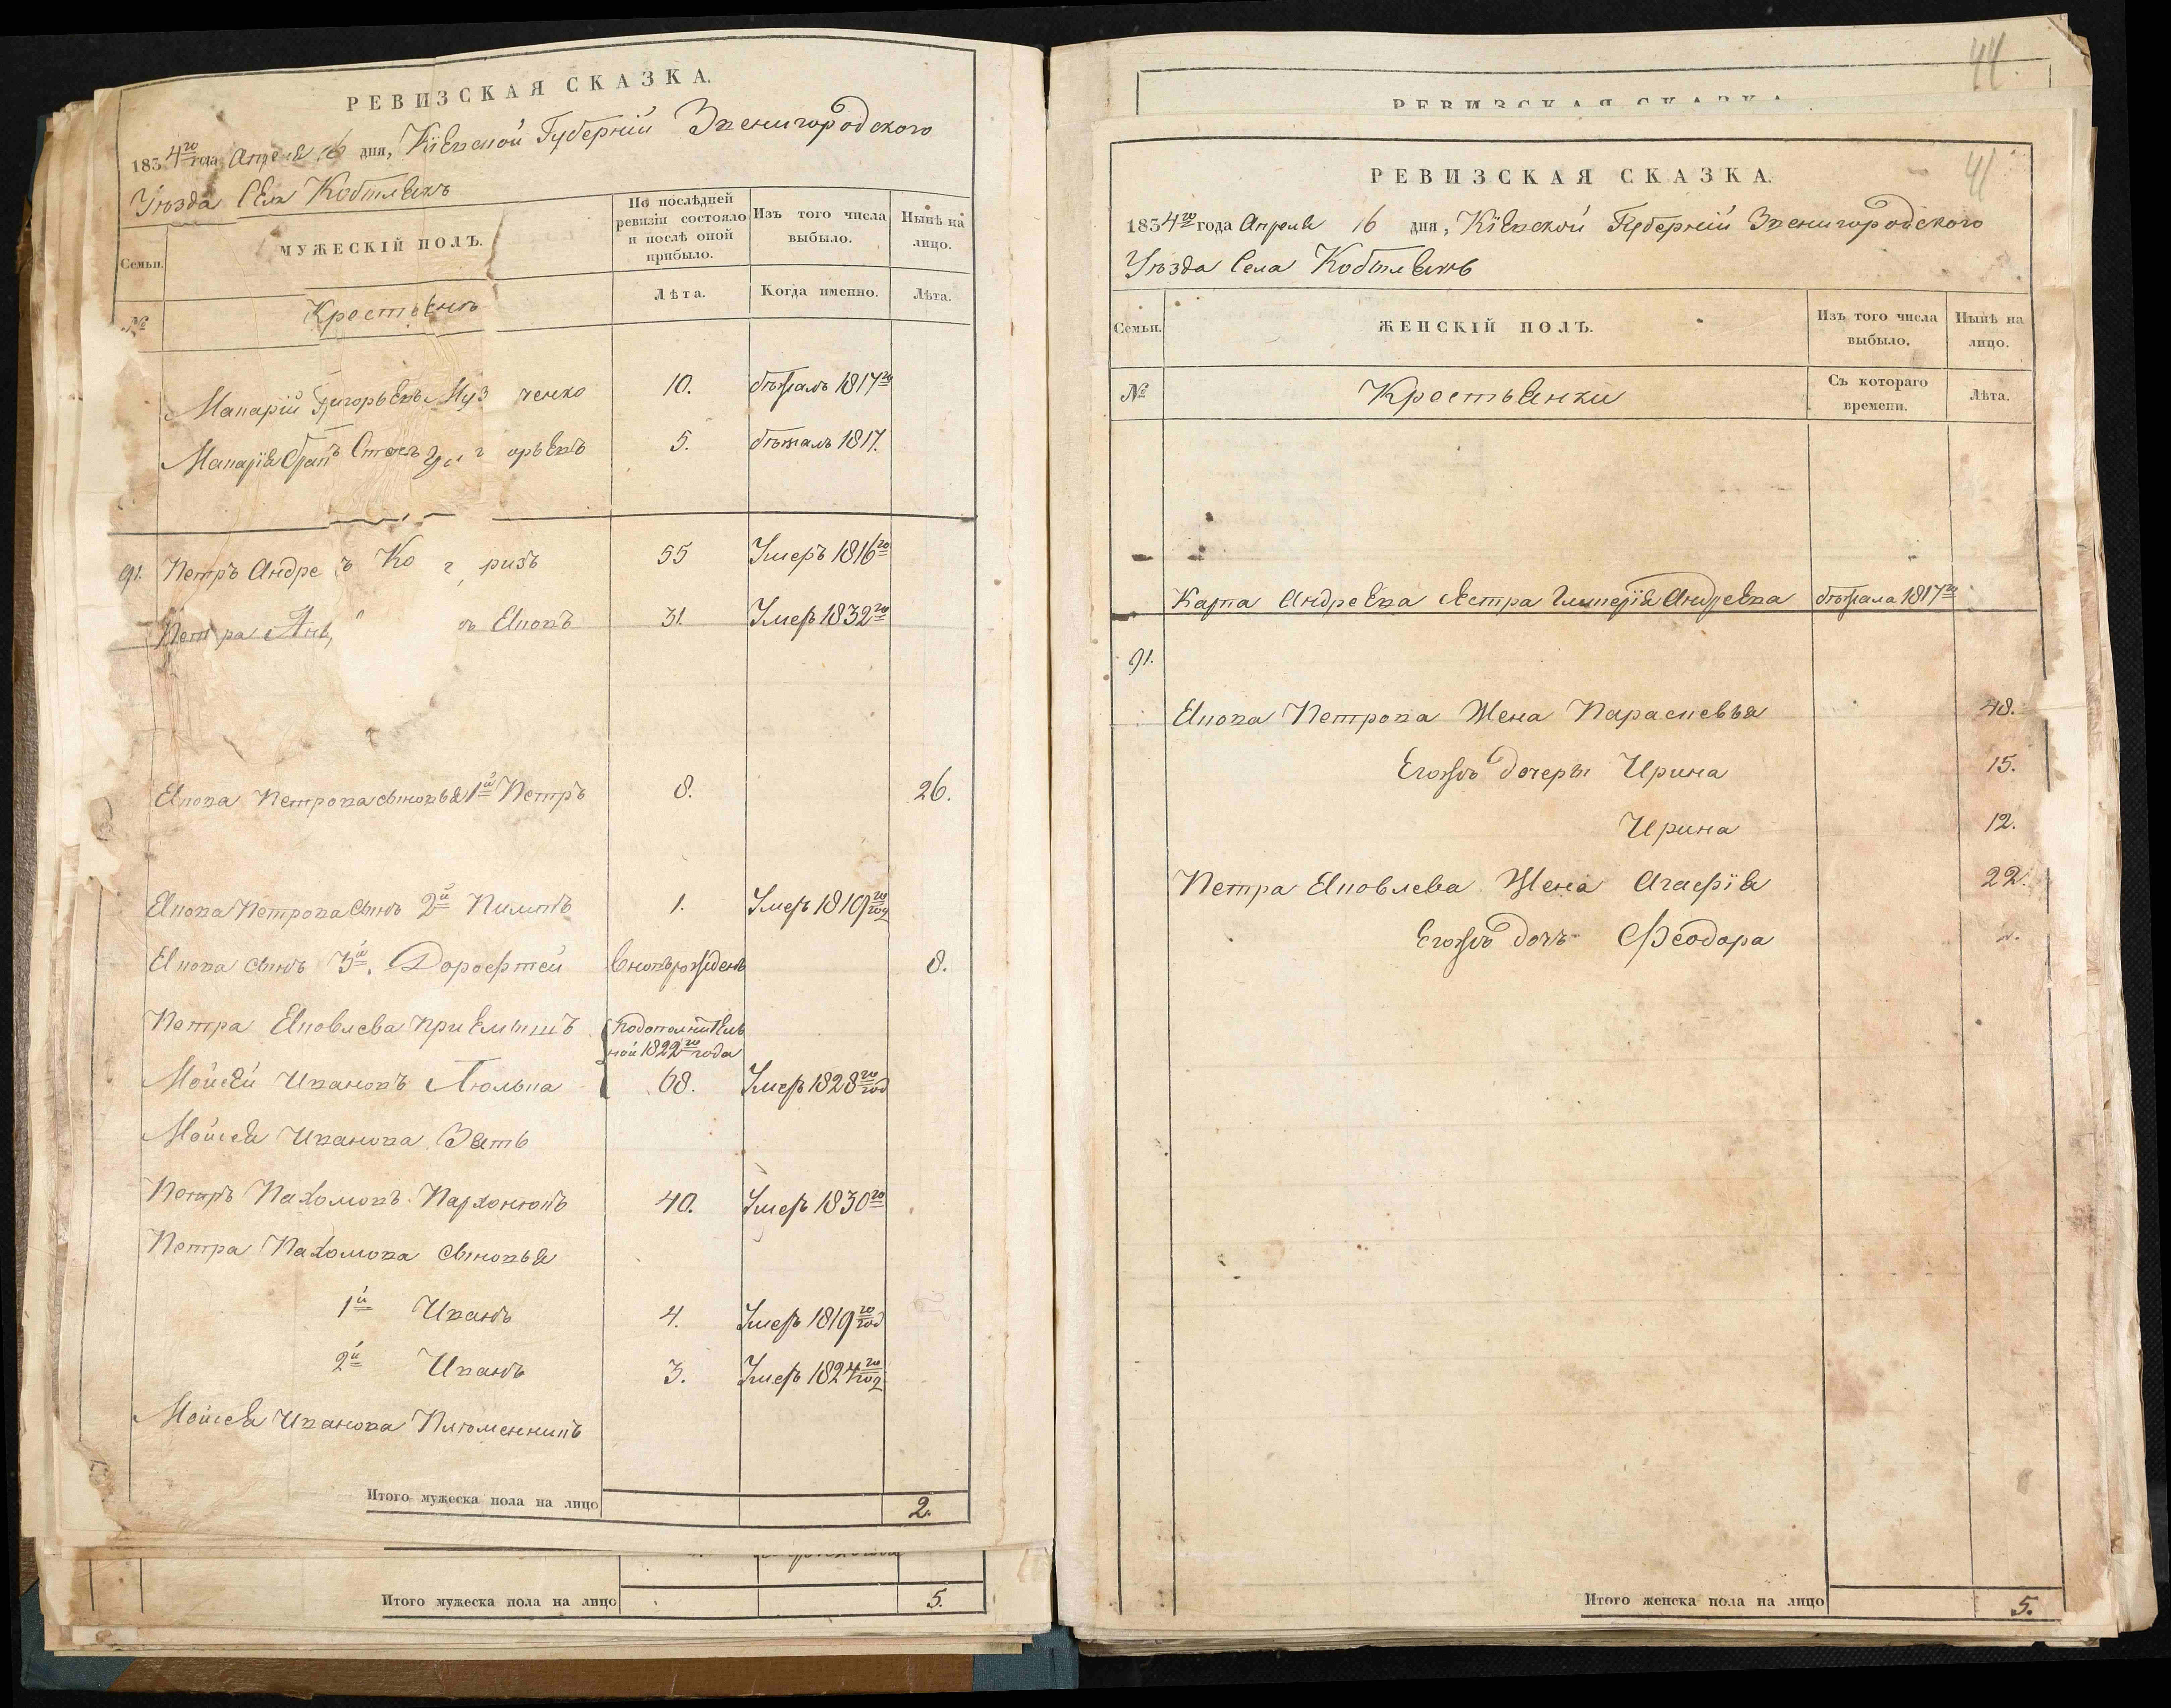 РЕВИЗСКАЯ СКАЗКА.
1834го года Апреля 16 дня, Кіевской Губерніи Звенигородского
Уѣзда Села Кобыляковъ
Семьи.
МУЖЕСКІЙ ПОЛЪ.
По послѣдней ревизіи состояло и послѣ оной прибыло.
Изъ того числа выбыло.
Нынѣ на лицо.
№
Крестьянъ
Лѣта.
Когда именно.
Лѣта.
Макарій Григорьевъ ченко 10. бѣжалъ 1817го
Макарія Братъ орьевъ 5. бѣжалъ 1817.
91. Петръ Андре ъ Ко ризъ 55 Умеръ 1816го
Петра ъ Яковъ 31. Умеръ 1832го
Якова Петрова сыновья 1й Петръ 8. 26.
Якова Петрова Сынъ 2й Пилипъ 1. Умеръ 1819го год
Якова сынъ 3й. Дорофтей вновьрожденъ 8.
Петра Яковлева приемышъ подополнитель
ной 1822го года
Мойсей Ивановъ Люлька 68. Умеръ 1828го год
Мойсея Иванова Зять
Петръ Пахомовъ Пархонюкъ 40. Умеръ 1830го
Петра Пахомова сыновья
1й Иванъ 4. Умеръ 1819го год
2й Иванъ 3. Умеръ 1824го год
Мойсея Иванова Племенникъ
Итого мужеска пола на лицо 2.
Итого мужеска пола на лицо 5.
44.
РЕВИЗСКАЯ СКАЗКА
41
РЕВИЗСКАЯ СКАЗКА.
1834го года Апреля 16 дня, Кіевской Губерніи Звенигородского
Уѣзда Села Кобыляковъ
Семьи.
ЖЕНСКІЙ ПОЛЪ.
Изъ того числа выбыло.
Нынѣ на лицо.
№
Крестьянки
Съ котораго времени.
Лѣта.
Карпа Андреева Сестра Гликерія Андреева бѣжала 1817го
91.
Якова Петрова Жена Параскевья 48.
Егожъ дочеры Ирина 15.
Ирина 12.
Петра Яковлева Жена Агафія 22.
Егожъ дочь Феодора
Итого женска пола на лицо 5.